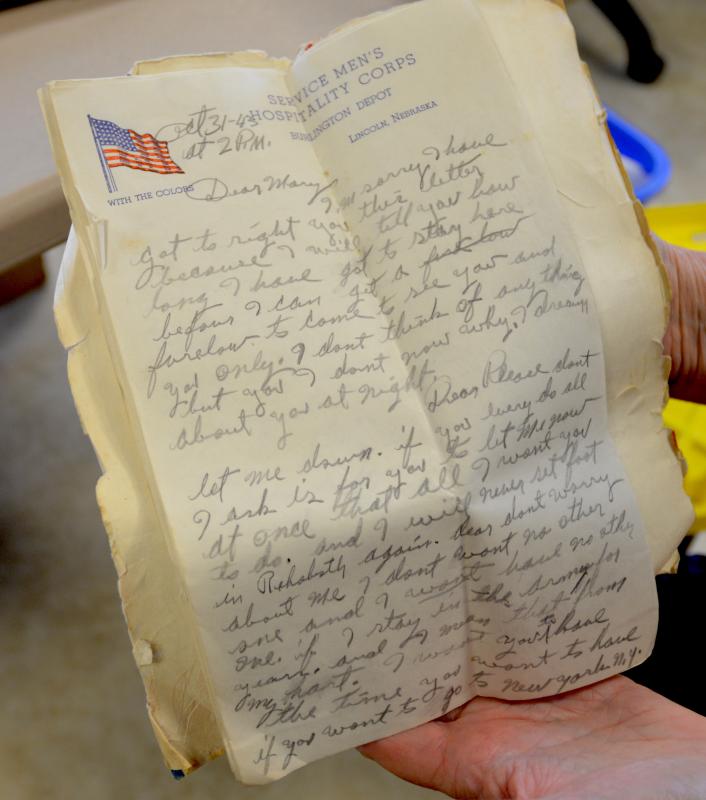 SERVICE MEN'S
HOSPITALITY CORPS
BURLINGTON DEPOT
LINCOLN, NEBRASKA
WITH THE COLORS
Oct 31-43
at 2 P.M.
Dear Mary I'm sorry I have
got to right you this letter
because I will tell you how
long I have got to stay here
befour I can get a
furelow to come to see you and
you only. I dont think of any thing
but you I dont now why. I dream
about you at night.
Dear Please dont
let me down. if you every do all
I ask is for you to let me now
at once that all I want you
to do. and I will never set foot
in Rehoboth again. dear dont worry
about me I dont want, no other
one and I wont have no other
one. if I stay in the army for
years. and I mean that from
my hart. I want you to have
the time you want to have
if you want to go to new york. N.Y.